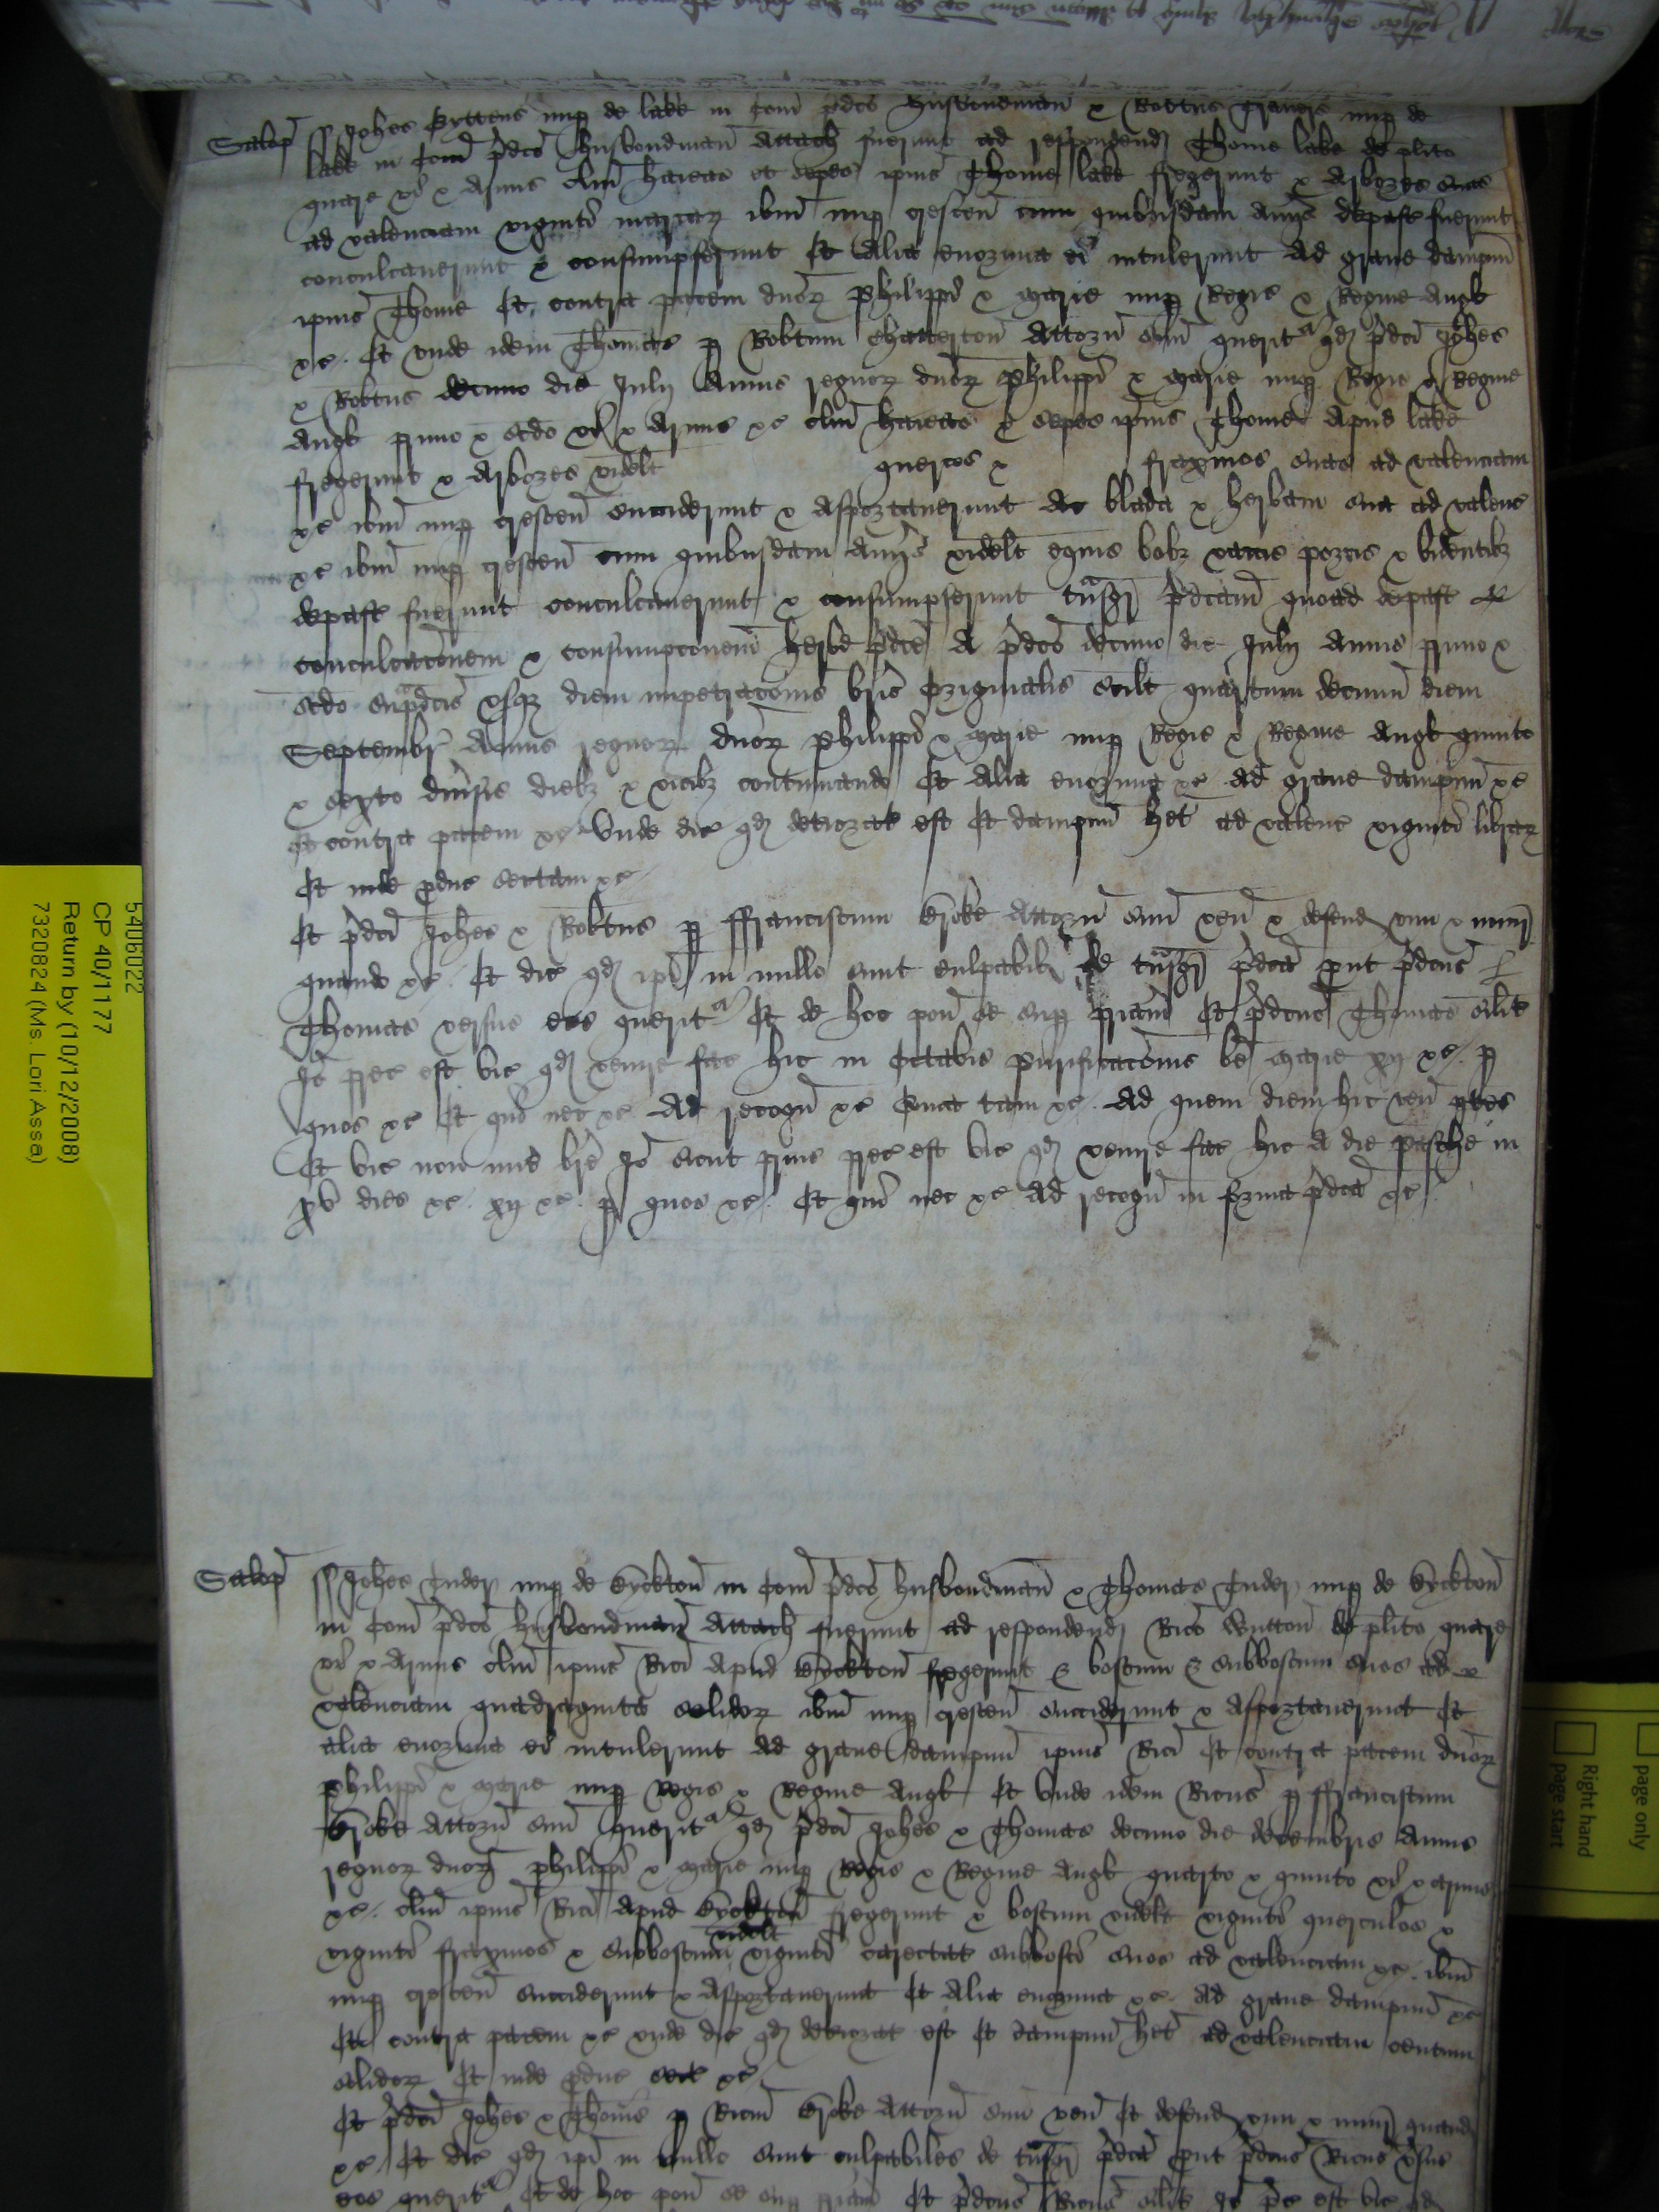 Salop ss Johes Gyttens nup de lake in Com pdco husbondman & Robtus Travers nup de
lake in Com pdco husbondman Attach fuerunt ad respondend Thome lake de plito
quare vi & armis clm haicas et sepes ipius Thome lake fregerunt & Arbores suas
ad valenciam viginti marcar ibm nup crescen cum quibusdam Aviis depast fuerunt
conculcaverunt & consumpserunt Et Alia enormia ei intulerunt Ad grave dampnu
ipius Thome Et contra pacem dnor Philippi & Marie nup Regis & Regine Angl
&c. Et unde idem Thomas p Robtum Chatterton Attorn suu querit qd pdci Johes
& Robtus decimo die Julij Annis regnor dnor Philippi & Marie nup Regis & Regine
Angl primo & scdo vi & Armis &c clm haicas & sepes ipius Thome Apud lake
fregerunt & Arbores videlt quercos & fraxinos suas ad valenciam
&c ibm nup crescen succiderunt & Asportaverunt Ac blada & herbam sua ad valenc
&c ibm nup crescen cum quibusdam Aviis videlt equis bobz vaccis porcis & bidentibz
depast fuerunt conculcaverunt & consumpserunt tnsgr pdcam quoad depast &
conculcacionem & consumpconem herbe pdce A pdco decimo die Julij Annis primo &
scdo supadcis usqz diem impetracois bris originalis scilt quartum decimu diem
Septembr Annis regnor dnor Philippi & Marie nup Regis & Regine Angl quinto
& sexto divsis diebz & vicibz continuando Et Alia enormia &c Ad grave dampnu &c
Et contra pacem &c Unde dic qd deteriorat est Et dampnu het ad valenc viginti librar
Et inde pduc sectam &c
Et pdci Johes & Robtus p ffranciscum Broke Attorn suu ven & defend vim & iniur
quando &c Et dic qd ipi in nullo sunt culpabiles de tnsgr pdca put pdcus
Thomas versus eos querit Et de hoc pon se sup priam Et pdcus Thomas silit
Io prec est vic qd venire fac hic in Octabis Purificacois be Marie xij &c p
quos &c Et qui nec &c Ad recogn &c Quia tam &c Ad quem diem hic ven ptes
Et vic non mis bre Io sicut prius prec est vic qd venire fac hic A die Pasche in
xv dies &c xij &c p quos &c Et qui nec &c Ad recogn in forma pdca &c
Salop ss Johes Tuder nup de Eyckton in Com pdco husbondman & Thomas Tuder nup de Eyckton
in Com pdco husbondman Attach fuerunt ad respondend Rico Wutton de plito quare
vi & Armis clm ipius Rici Apud Eyckton fregerunt & boscum & subboscum suos ad
valenciam quadraginta solidor ibm nup crescen succiderunt & Asportaverunt Et
alia enormia ei intulerunt Ad grave dampnu ipius Rici Et contra pacem dnor
Philippi & Marie nup Regis & Regine Angl Et Unde idem Ricus p ffranciscum
Broke Attorn suu querit qd pdci Johes & Thomas decimo die decembris Annis
regnor dnor Philippi & Marie nup Regis & Regine Angl quarto & quinto vi & armis
&c clm ipius Rici Apud Eyckton fregerunt & boscum videlt viginti querculos &
viginti fraxinos & subboscum videlt viginti carectat subbosci suos ad valenciam &c ibm
nup crescen succiderunt & Asportaverunt Et Alia enormia &c Ad grave dampnu &c
Et contra pacem &c unde dic qd deteriorat est Et dampnu het ad valenciam centum
solidor Et inde pduc sect &c
Et pdci Johes & Thomas p Ricm Broke Attorn suu ven Et defend vim & iniur quand
&c Et dic qd ipi in nullo sunt culpabiles de tnsgr pdca put pdcus Ricus vsus
eos querit Et de hoc pon se sup priam Et pdcus Ricus silit Io pc est vic qd
5406022
CP 40/1177
Return by (10/12/2008)
7320824 (Ms. Lori Assa)
page only
Right hand
page start